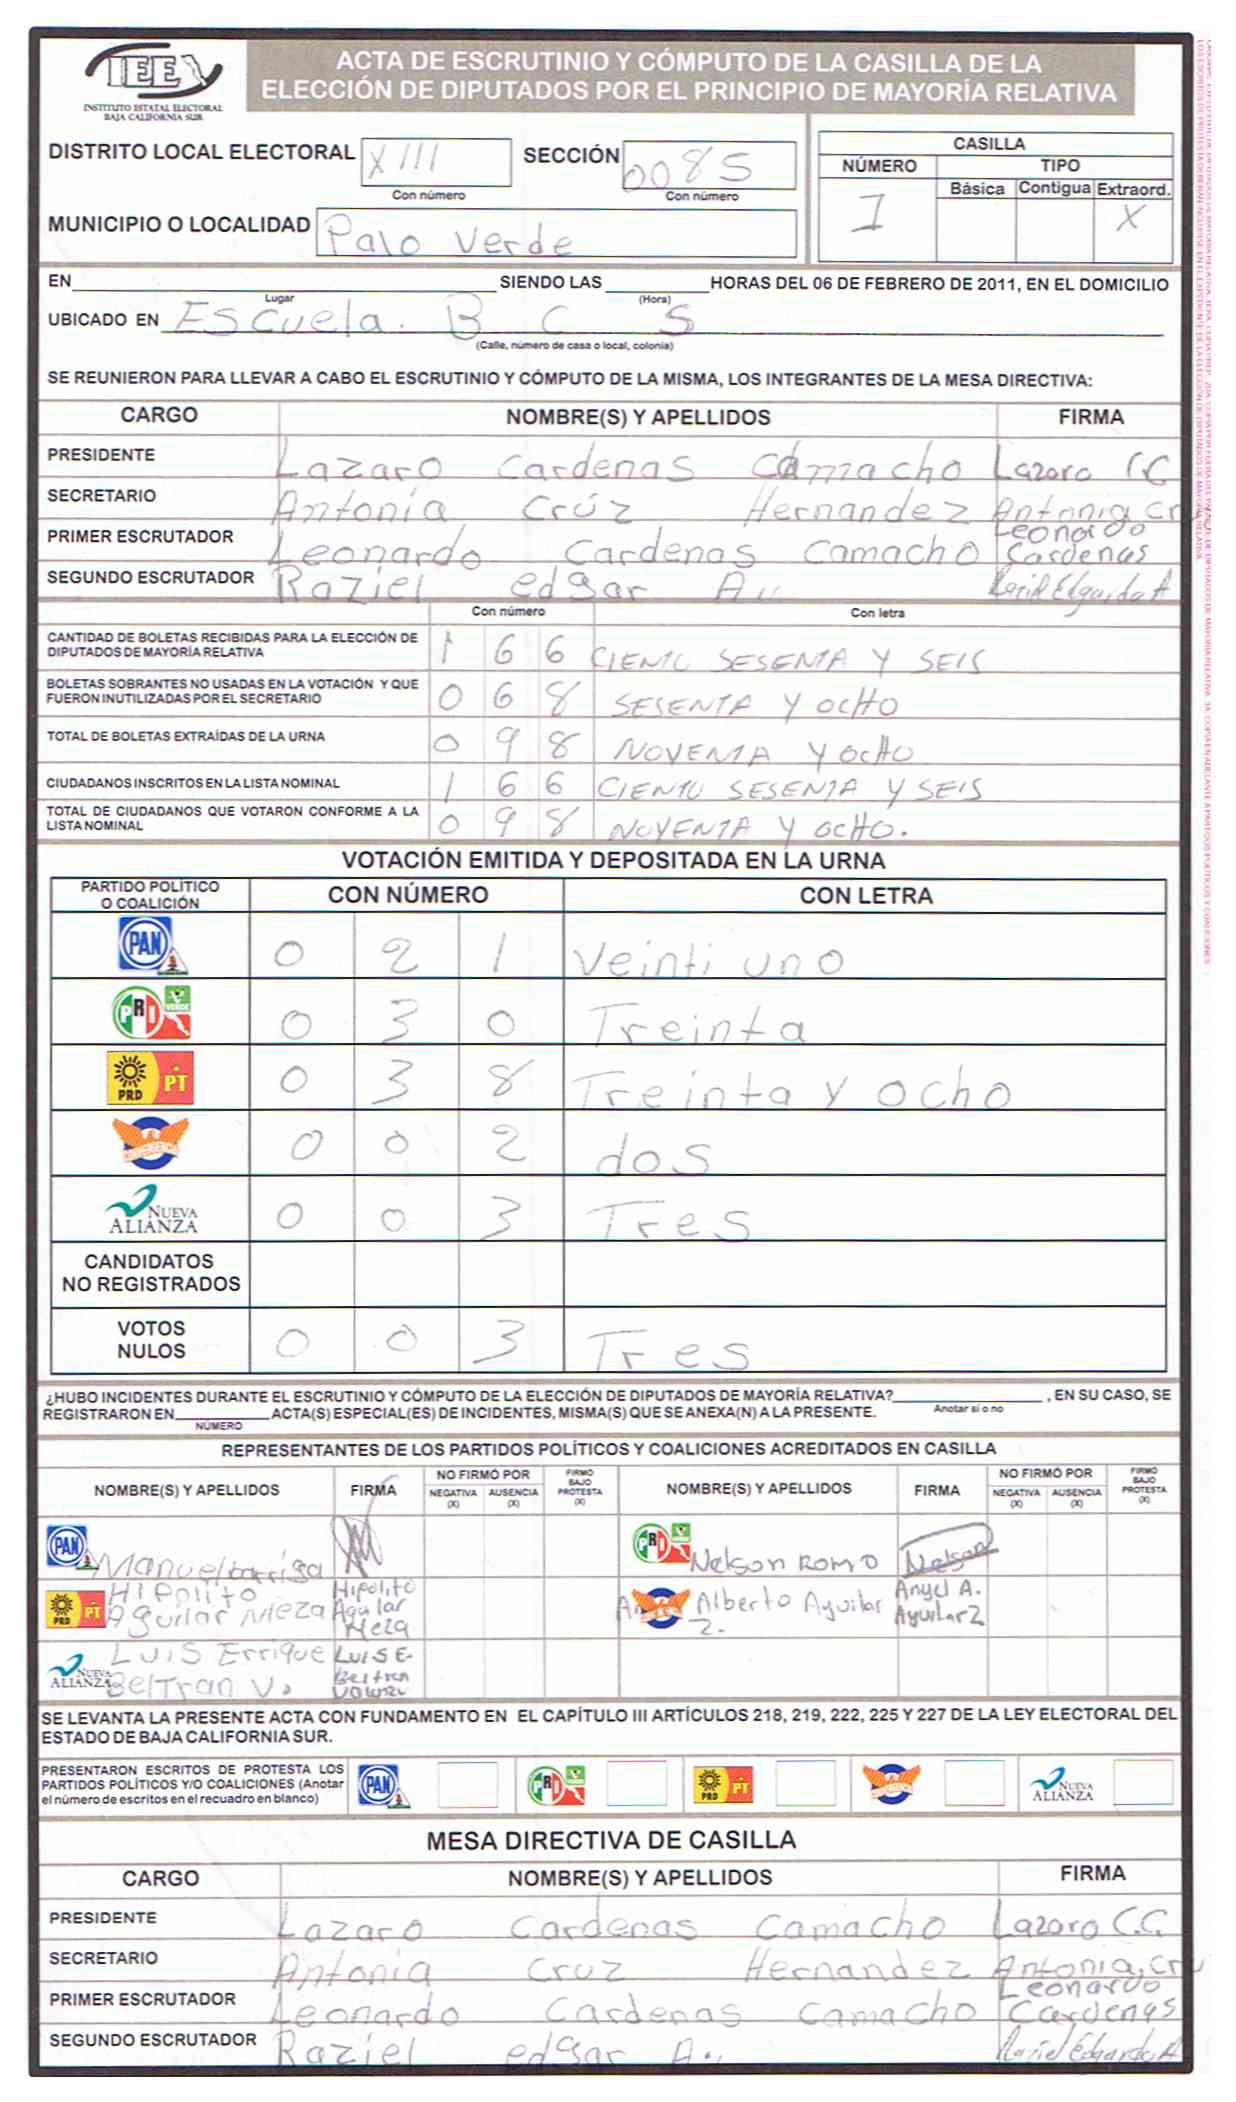 IEE
INSTITUTO ESTATAL ELECTORAL
BAJA CALIFORNIA SUR
ACTA DE ESCRUTINIO Y CÓMPUTO DE LA CASILLA DE LA
ELECCIÓN DE DIPUTADOS POR EL PRINCIPIO DE MAYORÍA RELATIVA
DISTRITO LOCAL ELECTORAL XIII SECCIÓN 0085
Con número Con número
MUNICIPIO O LOCALIDAD Palo Verde
CASILLA
NÚMERO TIPO
Básica Contigua Extraord.
I X
EN SIENDO LAS HORAS DEL 06 DE FEBRERO DE 2011, EN EL DOMICILIO
Lugar (Hora)
UBICADO EN Escuela. B C S
(Calle, número de casa o local, colonia)
SE REUNIERON PARA LLEVAR A CABO EL ESCRUTINIO Y CÓMPUTO DE LA MISMA, LOS INTEGRANTES DE LA MESA DIRECTIVA:
CARGO NOMBRE(S) Y APELLIDOS FIRMA
PRESIDENTE Lazaro Cardenas Camacho Lazaro C.C
SECRETARIO Antonia Crúz Hernandez Antonia Cru
PRIMER ESCRUTADOR Leonardo Cardenas Camacho Leonardo Cardenas
SEGUNDO ESCRUTADOR Raziel edgar A..
Con número Con letra
CANTIDAD DE BOLETAS RECIBIDAS PARA LA ELECCIÓN DE
DIPUTADOS DE MAYORÍA RELATIVA 1 6 6 CIENTO SESENTA Y SEIS
BOLETAS SOBRANTES NO USADAS EN LA VOTACIÓN Y QUE
FUERON INUTILIZADAS POR EL SECRETARIO 0 6 8 SESENTA Y OCHO
TOTAL DE BOLETAS EXTRAÍDAS DE LA URNA 0 9 8 NOVENTA Y OCHO
CIUDADANOS INSCRITOS EN LA LISTA NOMINAL 1 6 6 CIENTO SESENTA Y SEIS
TOTAL DE CIUDADANOS QUE VOTARON CONFORME A LA
LISTA NOMINAL 0 9 8 NOVENTA Y OCHO.
VOTACIÓN EMITIDA Y DEPOSITADA EN LA URNA
PARTIDO POLÍTICO
O COALICIÓN CON NÚMERO CON LETRA
PAN 0 2 1 Veinti uno
PRI VERDE 0 3 0 Treinta
PRD PT 0 3 8 Treinta y ocho
CONVERGENCIA 0 0 2 dos
NUEVA ALIANZA 0 0 3 Tres
CANDIDATOS
NO REGISTRADOS
VOTOS
NULOS 0 0 3 Tres
¿HUBO INCIDENTES DURANTE EL ESCRUTINIO Y CÓMPUTO DE LA ELECCIÓN DE DIPUTADOS DE MAYORÍA RELATIVA? , EN SU CASO, SE
Anotar sí o no
REGISTRARON EN ACTA(S) ESPECIAL(ES) DE INCIDENTES, MISMA(S) QUE SE ANEXA(N) A LA PRESENTE.
NÚMERO
REPRESENTANTES DE LOS PARTIDOS POLÍTICOS Y COALICIONES ACREDITADOS EN CASILLA
NOMBRE(S) Y APELLIDOS FIRMA NO FIRMÓ POR NEGATIVA (X) AUSENCIA (X) FIRMÓ BAJO PROTESTA (X) NOMBRE(S) Y APELLIDOS FIRMA NO FIRMÓ POR NEGATIVA (X) AUSENCIA (X) FIRMÓ BAJO PROTESTA (X)
PAN Manuel PRI Nelson Romo Nelson
PRD PT Hipolito Aguilar Meza Hipolito Aguilar Meza Alberto Aguilar Z. Angel A. Aguilar Z
NUEVA ALIANZA Luis Errique Beltran V. Luis E. Beltran
SE LEVANTA LA PRESENTE ACTA CON FUNDAMENTO EN EL CAPÍTULO III ARTÍCULOS 218, 219, 222, 225 Y 227 DE LA LEY ELECTORAL DEL
ESTADO DE BAJA CALIFORNIA SUR.
PRESENTARON ESCRITOS DE PROTESTA LOS
PARTIDOS POLÍTICOS Y/O COALICIONES (Anotar
el número de escritos en el recuadro en blanco)
PAN PRI VERDE PRD PT CONVERGENCIA NUEVA ALIANZA
MESA DIRECTIVA DE CASILLA
CARGO NOMBRE(S) Y APELLIDOS FIRMA
PRESIDENTE Lazaro Cardenas Camacho Lazaro C.C.
SECRETARIO Antonia Cruz Hernandez Antonia Cru
PRIMER ESCRUTADOR Leonardo Cardenas Camacho Leonardo Cardenas
SEGUNDO ESCRUTADOR Raziel edgar A..